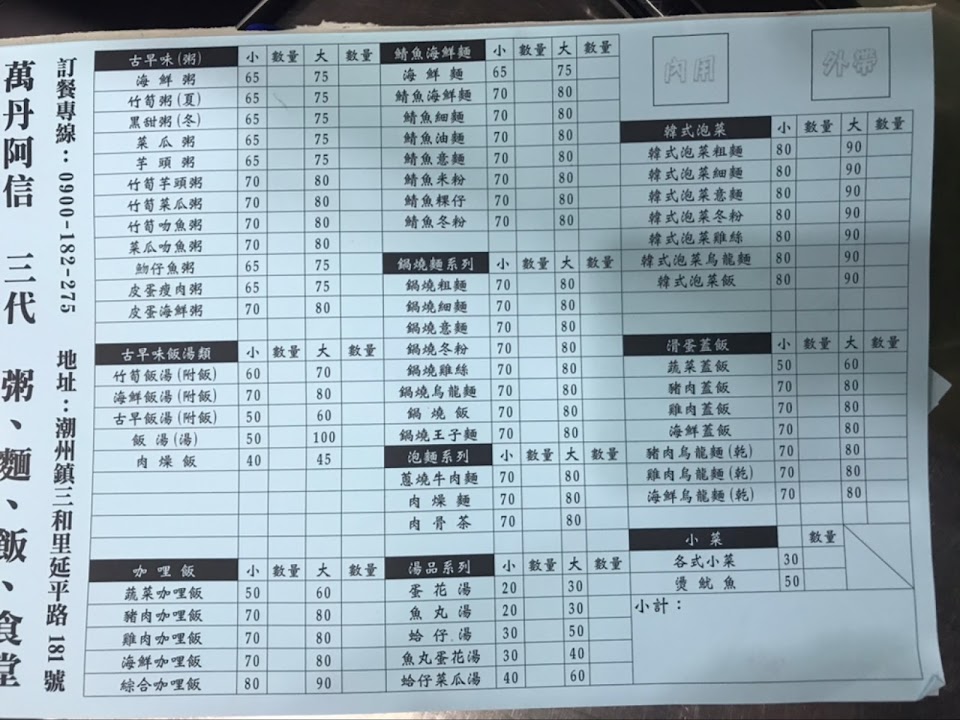 萬丹阿信 三代 粥、麵、飯、食堂
訂餐專線：0900-182-275 地址：潮州鎮三和里延平路181號
古早味(粥) 小 數量 大 數量
海鮮粥 65 75
竹筍粥(夏) 65 75
黑甜粥(冬) 65 75
菜瓜粥 65 75
芋頭粥 65 75
竹筍芋頭粥 70 80
竹筍菜瓜粥 70 80
竹筍吻魚粥 70 80
菜瓜吻魚粥 70 80
魩仔魚粥 65 75
皮蛋瘦肉粥 65 75
皮蛋海鮮粥 70 80
古早味飯湯類 小 數量 大 數量
竹筍飯湯(附飯) 60 70
海鮮飯湯(附飯) 70 80
古早飯湯(附飯) 50 60
飯湯(湯) 50 100
肉燥飯 40 45
咖哩飯 小 數量 大 數量
蔬菜咖哩飯 50 60
豬肉咖哩飯 70 80
雞肉咖哩飯 70 80
海鮮咖哩飯 70 80
綜合咖哩飯 80 90
鯖魚海鮮麵 小 數量 大 數量
海鮮麵 65 75
鯖魚海鮮麵 70 80
鯖魚細麵 70 80
鯖魚油麵 70 80
鯖魚意麵 70 80
鯖魚米粉 70 80
鯖魚粿仔 70 80
鯖魚冬粉 70 80
鍋燒麵系列 小 數量 大 數量
鍋燒粗麵 70 80
鍋燒細麵 70 80
鍋燒意麵 70 80
鍋燒冬粉 70 80
鍋燒雞絲 70 80
鍋燒烏龍麵 70 80
鍋燒飯 70 80
鍋燒王子麵 70 80
泡麵系列 小 數量 大 數量
蔥燒牛肉麵 70 80
肉燥麵 70 80
肉骨茶 70 80
湯品系列 小 數量 大 數量
蛋花湯 20 30
魚丸湯 20 30
蛤仔湯 30 50
魚丸蛋花湯 30 40
蛤仔菜瓜湯 40 60
內用 外帶
韓式泡菜 小 數量 大 數量
韓式泡菜粗麵 80 90
韓式泡菜細麵 80 90
韓式泡菜意麵 80 90
韓式泡菜冬粉 80 90
韓式泡菜雞絲 80 90
韓式泡菜烏龍麵 80 90
韓式泡菜飯 80 90
滑蛋蓋飯 小 數量 大 數量
蔬菜蓋飯 50 60
豬肉蓋飯 70 80
雞肉蓋飯 70 80
海鮮蓋飯 70 80
豬肉烏龍麵(乾) 70 80
雞肉烏龍麵(乾) 70 80
海鮮烏龍麵(乾) 70 80
小菜 數量
各式小菜 30
燙魷魚 50
小計：